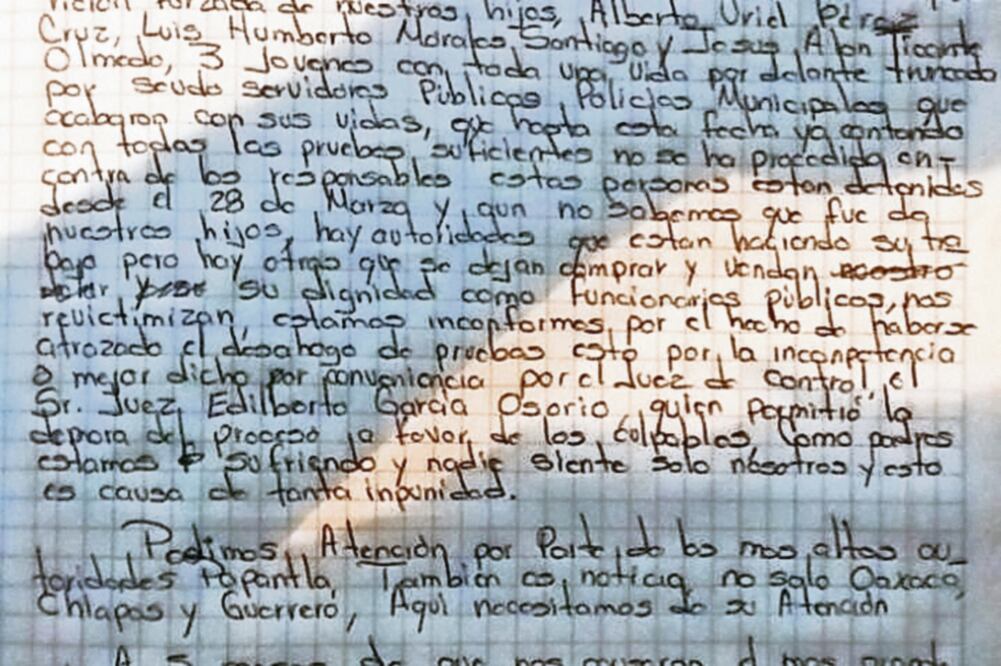 rición forzada de nuestros hijos, Alberto Uriel Pérez
Cruz, Luis Humberto Morales Santiago y Jesus Alan Ticante
Olmedo, 3 Jovenes con toda una vida por delante truncada
por seudo servidores Públicos, Policias Municipales que
acabaron con sus vidas, que hasta esta fecha ya contando
con todas las pruebas suficientes no se ha procedido en-
contra de los responsables estas personas estan detenidas
desde el 28 de Marzo y aun no sabemos que fue de
nuestros hijos, hay autoridades que estan haciendo su tra
bajo pero hay otras que se dejan comprar y vendan
su dignidad como funcionarios públicos, nos
revictimizan, estamos inconformes por el hecho de haberse
atrozado el desahogo de pruebas esto por la inconpetencia
o mejor dicho por conveniencia por el Juez de control el
Sr. Juez Edilberto García Osorio, quien permitió la
demora del proceso a favor de los culpables, Como padres
estamos sufriendo y nadie siente solo nosotros y esto
es causa de tanta inpunidad.
Pedimos Atención por Parte de los mas altas au_
toridades Papantla También es noticia no solo Oaxaca,
Chiapas y Guerrero, Aquí necesitamos de su Atención
A 5 meses de que nos